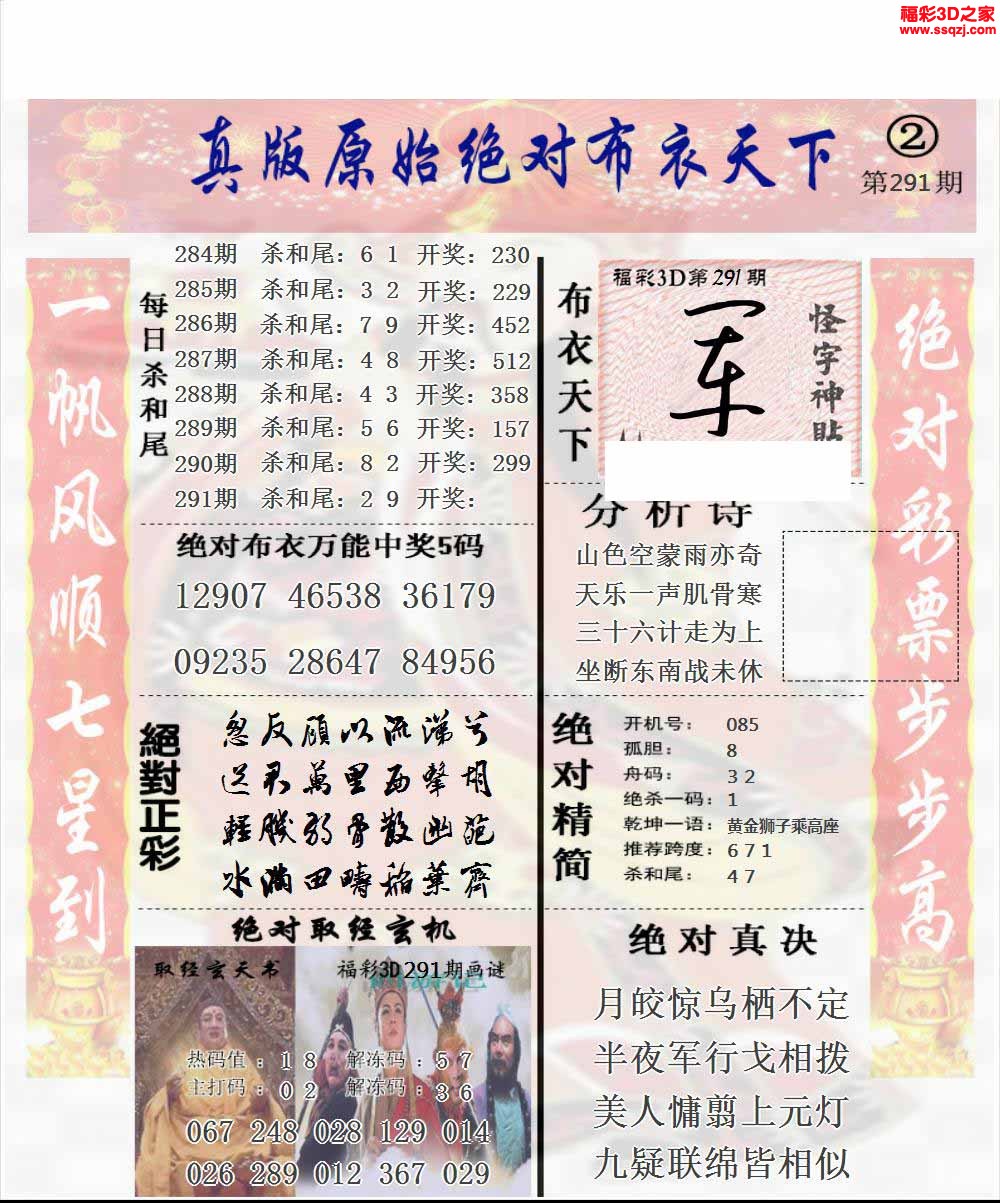 福彩3D之家
www.ssqzj.com
真版原始绝对布衣天下
②
第291期
一帆风顺七星到
每日杀和尾
284期 杀和尾：6 1 开奖：230
285期 杀和尾：3 2 开奖：229
286期 杀和尾：7 9 开奖：452
287期 杀和尾：4 8 开奖：512
288期 杀和尾：4 3 开奖：358
289期 杀和尾：5 6 开奖：157
290期 杀和尾：8 2 开奖：299
291期 杀和尾：2 9 开奖：
绝对布衣万能中奖5码
12907 46538 36179
09235 28647 84956
絕對正彩
忽反顧以流涕兮
送君萬里西擊胡
輕勝弱骨散幽葩
水滿田疇稻葉齊
绝对取经玄机
取经玄天书
福彩3D291期画谜
热码值：1 8 解冻码：5 7
主打码：0 2 解冻码：3 6
067 248 028 129 014
026 289 012 367 029
布衣天下
福彩3D第291期
军
怪字神贴
分析诗
山色空蒙雨亦奇
天乐一声肌骨寒
三十六计走为上
坐断东南战未休
绝对精简
开机号： 085
孤胆： 8
舟码： 3 2
绝杀一码：1
乾坤一语：黄金狮子乘高座
推荐跨度：6 7 1
杀和尾： 4 7
绝对真决
月皎惊乌栖不定
半夜军行戈相拨
美人慵翦上元灯
九疑联绵皆相似
绝对彩票步步高